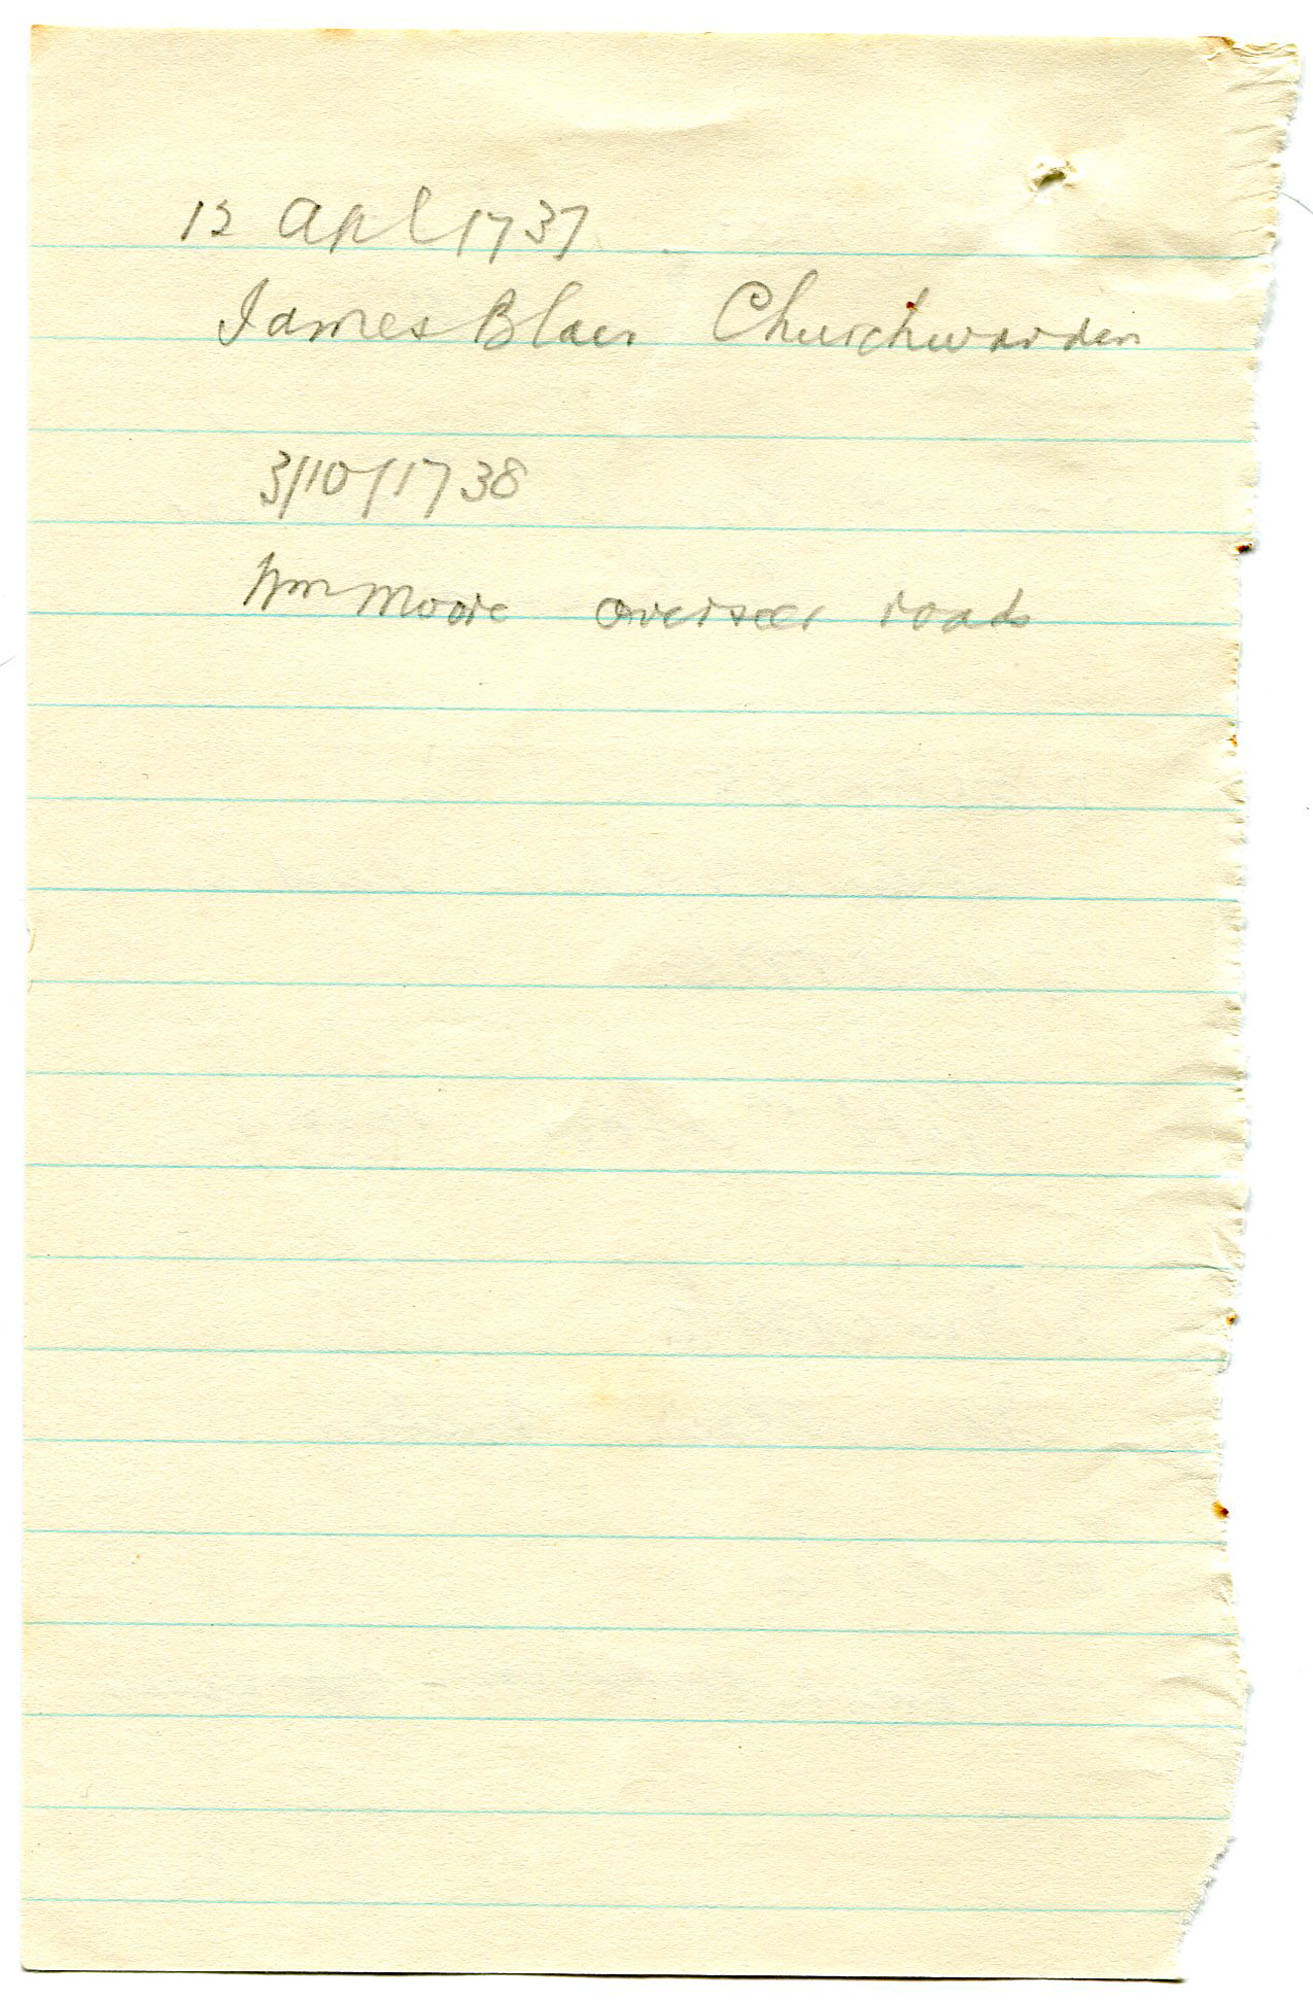 12 Apl 1737
James Blair Churchwarden
3/10/1738
Wm Moore overseer roads